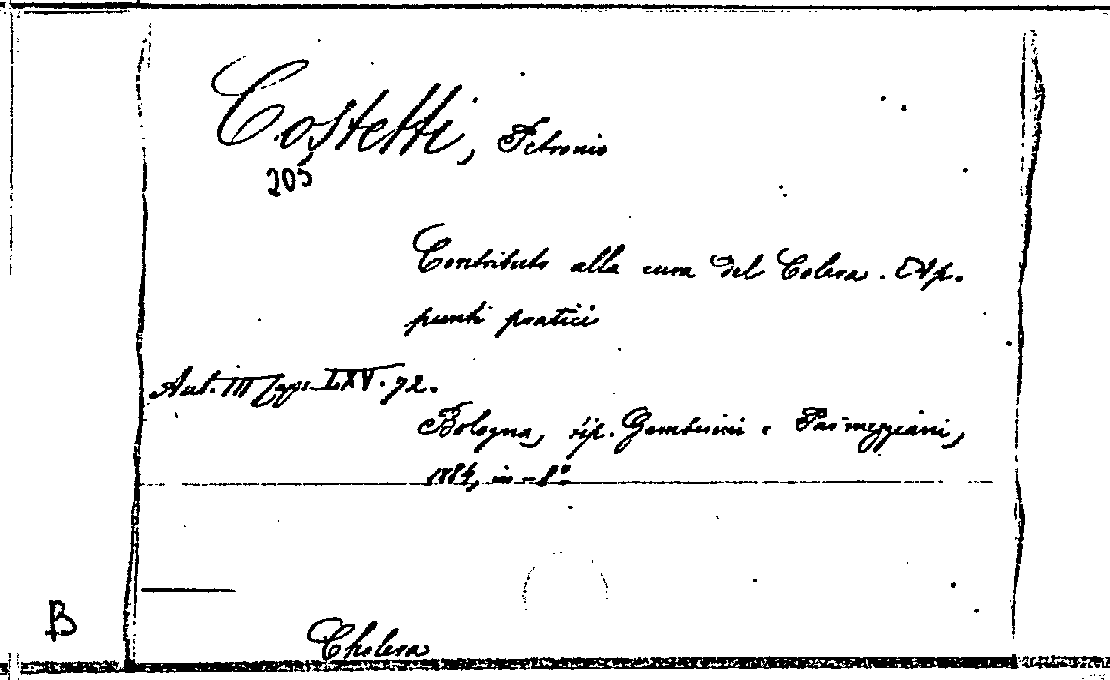 Costetti, Petronio
205
Contributo alla cura del Colera. Ap.
punti pratici
Aut. III Caps. LXV. 72.
Bologna, tip. Gamberini e Parmeggiani,
1884, in-8°
B
Cholera